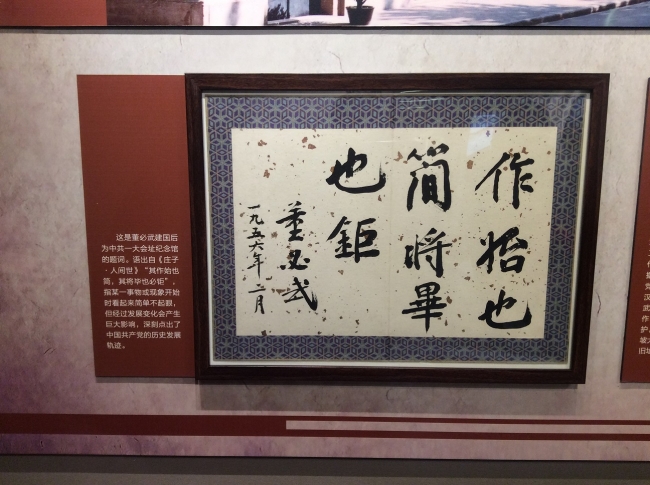 这是董必武建国后
为中共一大会址纪念馆
的题词。语出自《庄子
·人间世》“其作始也
简，其将毕也必钜”，
指某一事物或现象开始
时看起来简单不起眼，
但经过发展变化会产生
巨大影响，深刻点出了
中国共产党的历史发展
轨迹。
作始也
簡將畢
也鉅
董必武
一九五六年二月
党
汉
武
作
护
旧址